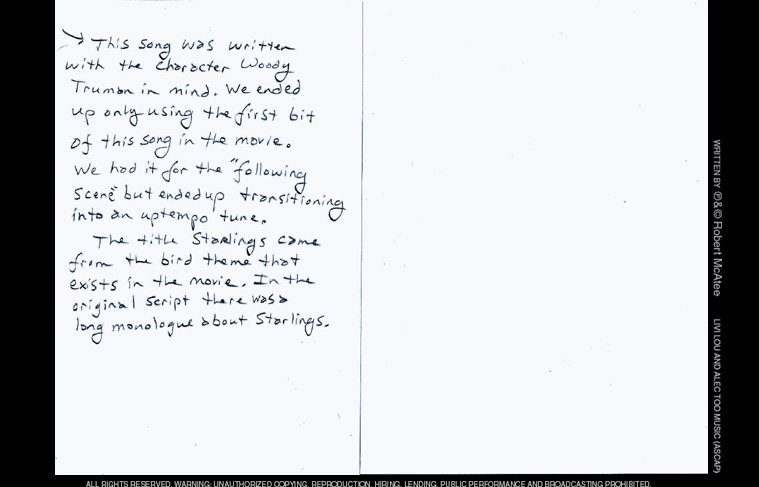 This song was written
with the character Woody
Truman in mind. We ended
up only using the first bit
of this song in the movie.
We had it for the "following
scene" but ended up transitioning
into an uptempo tune.
The title Starlings came
from the bird theme that
exists in the movie. In the
original script there was a
long monologue about Starlings.
WRITTEN BY ℗ & © Robert McAtee LIVI LOU AND ALEC TOO MUSIC (ASCAP)
ALL RIGHTS RESERVED. WARNING: UNAUTHORIZED COPYING, REPRODUCTION, HIRING, LENDING, PUBLIC PERFORMANCE AND BROADCASTING PROHIBITED.